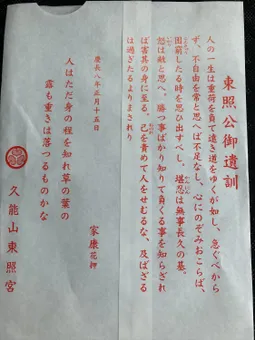 東照公御遺訓
人の一生は重荷を負て遠き道をゆくが如し、急ぐべから
ず、不自由を常と思へば不足なし、心にのぞみおこらば、
困窮したる時を思ひ出すべし、堪忍は無事長久の基。
怒は敵と思へ。勝つ事ばかり知りて負くる事を知らざれ
ば害其の身に至る。己を責めて人をせむるな、及ばざる
は過ぎたるよりまされり
慶長八年正月十五日
家康花押
人はただ身の程を知れ草の葉の
露も重きは落つるものかな
久能山東照宮